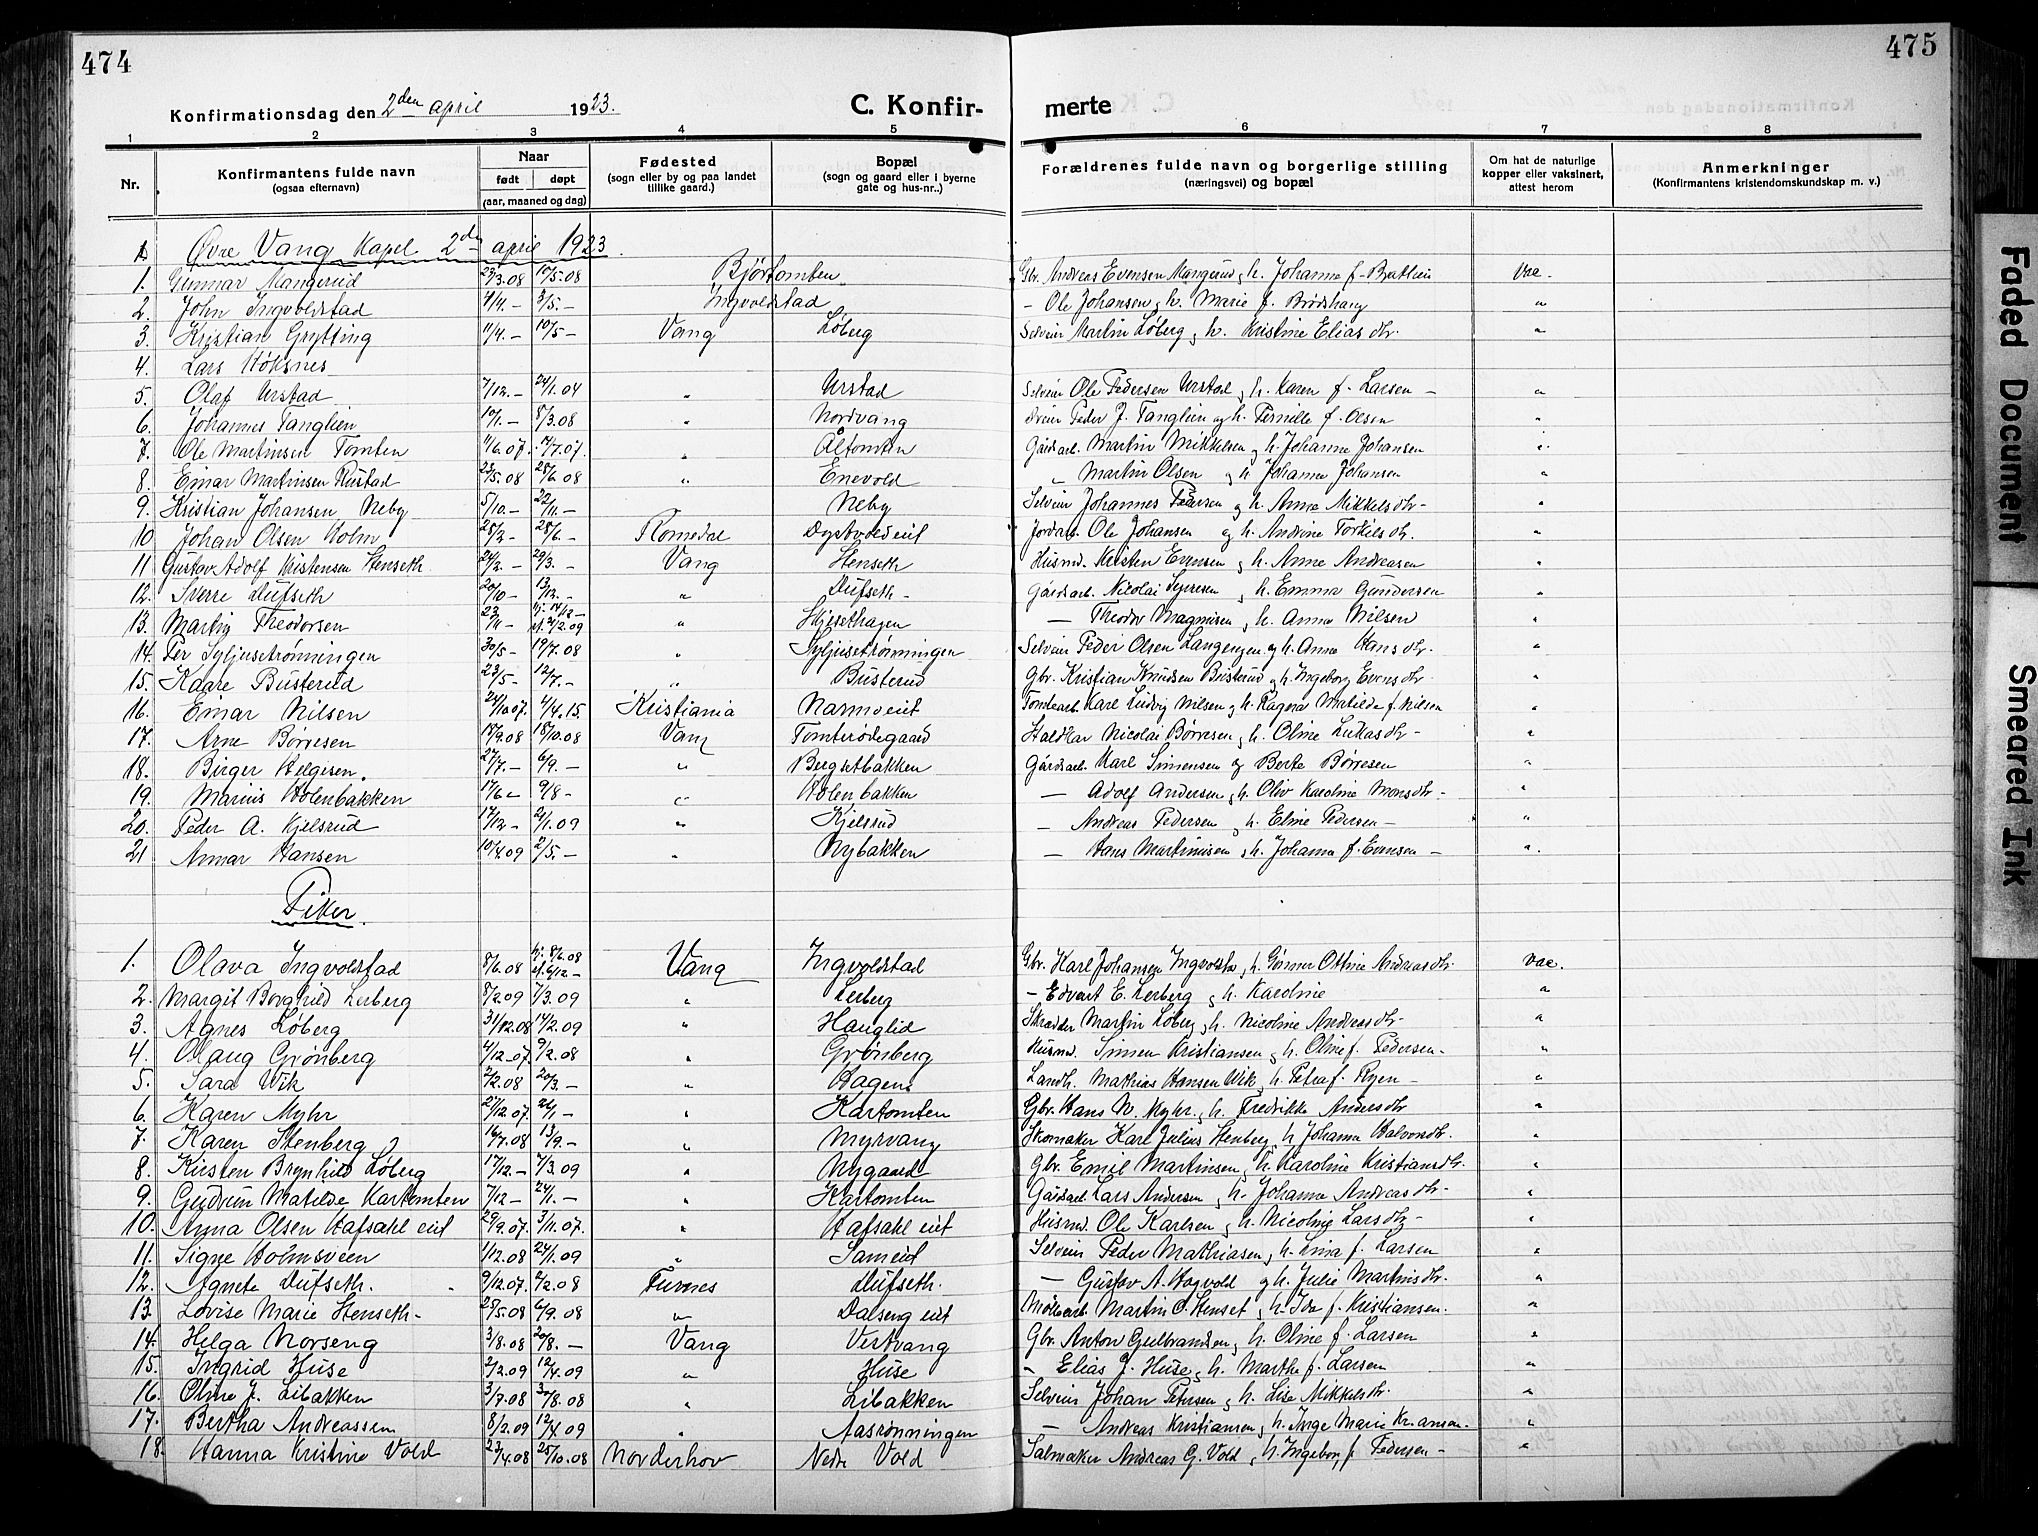 474
475
Konfirmationsdag den 2den april 1923.
C. Konfir-
merte
1 2 3 4 5 6 7 8
Nr.
Konfirmantens fulde navn
(ogsaa efternavn)
Naar
født døpt
(aar, maaned og dag)
Fødested
(sogn eller by og paa landet
tillike gaard.)
Bopæl
(sogn og gaard eller i byerne
gate og hus-nr..)
Forældrenes fulde navn og borgerlige stilling
(næringsvei) og bopæl
Om hat de naturlige
kopper eller vaksinert,
attest herom
Anmerkninger
(Konfirmantens kristendomskundskap m. v.)
Øvre Vang Kapel 2den april 1923.
1. Gunnar Mangerud 29/3.08 10/5.08 Bjørtomten Gbr. Andreas Evensen Mangerud, h. Johanne f. Brattlien Vac.
2. John Ingvoldstad 4/4.- 3/5.- Ingvoldstad - Ole Johansen, h. Marie f. Brødshaug "
3. Kristian Grytting 11/4.- 10/5- Vang Løberg Selveier Martin Løberg, h. Kristine Eliasdtr. "
4. Lars Høksnes
5. Olaf Urstad 7/12.- 24/1.04 " Urstad Selveier Ole Pedersen Urstad, h. Karen f. Larsen - "
6. Johannes Tanglien 10/1.- 8/3.08 " Nordvang Peder J. Tanglien og h. Pernille f. Olsen "
7. Ole Martinsen Tomten 11/6.07. 14/7.07. " Åltomten Gårdsarb. Martin Mikkelsen og h. Johanne Johansen "
8. Einar Martinsen Rustad 23/5.08 28/6.08 " Enevold - Martin Olsen og h. Johanne Johansen "
9. Kristian Johansen Neby 5/10.- 22/11.- Neby Selveier Johannes Pedersen og h. Anne Mikkelsdtr- "
10 Johan Olsen Holm 25/2- 28/6.- Romedal Dystvoldeiet Jordarb. Ole Johansen og h. Andrine Torkilsdtr. "
11 Gustav Adolf Kristensen Stenseth 24/2.- 29/3.- Vang Stenseth Husmd. Kristen Evensen og h. Anne Andreasen "
12. Sverre Dufseth 20/10- 13/12.- " Dufseth - Gårdsarb. Nicolai Syversen, h. Emma Gundersen "
13. Martin Theodorsen 23/11- hj. 14/12- st. 21/2.09 " Skjesethagen - Theodor Magnusen, h. Anna Nilsen "
14. Per Syljusetrønningen 30/5- 19/7.08 " Syljusetrønningen Selveier Peder Olsen Langengen og h. Anne Hansdtr. "
15. Kaare Busterud 23/5- 12/7.- " Busterud Gbr. Kristian Knudsen Busterud og h. Ingeborg Evensdtr. "
16. Einar Nilsen 24/10.07. 4/4.15. Kristiania Narmoeiet Tomtearb. Karl Ludvig Nilsen og h. Ragna Matilde f. Nilsen "
17. Arne Børresen 17/9.08 18/10.08 Vang Tomterødegaard Staldkar Nicolai Børresen, h. Oline Lukasdtr - "
18. Birger Helgesen. 27/7.- 6/9.- " Bergsetbakken Gårdsarb. Karl Simensen og Berte Børresen "
19. Marius Holenbakken 17/6- 9/8- " Holenbakken - Adolf Andersen, h. Oliv Karoline Monsdtr- "
20. Peder A. Kjelsrud 17/12- 21/1.09 " Kjelsrud - Andreas Pedersen og h. Eline Pedersen - "
21 Annar Hansen 10/4.09 2/5.- " Nybakken - Hans Martinusen, h. Johanna f. Evensen - "
Piker.
1. Olava Ingvoldstad 8/6.08 hj. 8/6.08 st. 6/12- Vang Ingvoldstad Gbr. Karl Johansen Ingvoldstad, h. Gunner Ottine Andreasdtr Vac.
2. Margit Borghild Lerberg 8/2.09 7/3.09 " Lerberg - Edvart E. Lerberg, h. Karoline "
3. Agnes Løberg 31/12.08 14/2.09 " Hauglid Skrædder Martin Løberg, h. Nicoline Andreasdtr - "
4. Olaug Grønberg 4/12.07. 9/2.08 " Grønberg Husmd. Simen Kristiansen, h. Oline f. Pedersen - "
5. Sara Wik 2/2.08 20/3.- " Hagen Landh. Mathias Hansen Wik, h. Petra f. Ryen - "
6. Karen Myhr 27/12.07. 26/1- " Kartomten Gbr. Hans N. Myhr, h. Fredrikke Andersdtr "
7. Karen Stenberg 16/7.08 13/9.- " Myrvang Skomaker Karl Julius Stenberg, h. Johanna Halvorsdtr. "
8. Kirsten Brynhild Løberg 17/12- 7/3.09 " Nygaard Gbr. Emil Martinsen, h. Karoline Kristiansdtr. "
9. Gudrun Matilde Kartomten 7/12- 24/1.- " Kartomten Gårdsarb. Lars Andersen, h. Johanne Andreasdtr - "
10. Anna Olsen Hafsahl eiet 29/9.07. 3/11.07. " Hafsahl eiet Husmd. Ole Karlsen, h. Nicoline Larsdtr - "
11. Signe Holmsveen 1/12.08 24/1.09 " Sameiet Selveier Peder Mathiasen, h. Lina f. Larsen "
12. Agnete Dufseth. 9/12.07. 2/2.08 Furnes Dufseth. - Gustav A. Hagvold og h. Julie Martinsdtr. "
13. Lovise Marie Stenseth- 29/5.08 6/9.08 " Dalseng eiet Møllearb. Martin O. Stenset, h. Ida f. Kristiansen. "
14. Helga Norseng 3/8.08 20/8.- Vang Vestvang Gbr. Anton Gulbrandsen, h. Oline f. Larsen "
15. Ingrid Huse 2/2.09 12/4.09 " Huse - Elias J. Huse, h. Marthe f. Larsen "
16. Oline J. Libakken 3/7.08 30/8.08 " Libakken Selveier Johan Petersen, h. Lise Mikkelsdtr. "
17. Bertha Andreassen 8/2.09 12/4.09 " Aasrønningen - Andreas Kristiansen, h. Inge Marie Kr.ansen. "
18. Hanna Kristine Vold 23/4.08 25/10.08 Norderhov Nedre Vold Salmaker Andreas G. Vold, h. Ingeborg f. Pedersen - "
Faded Document
Smeared Ink